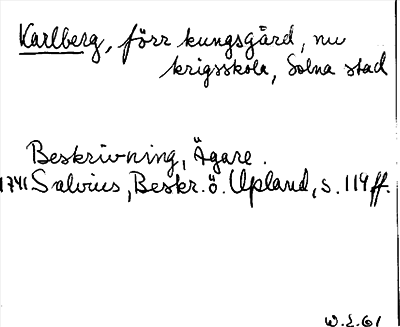 Karlberg, förr kungsgård, nu
krigsskola, Solna stad
Beskrivning, Ägare.
1741 Salvius, Beskr. ö. Upland, s. 119 ff.
W.E.61